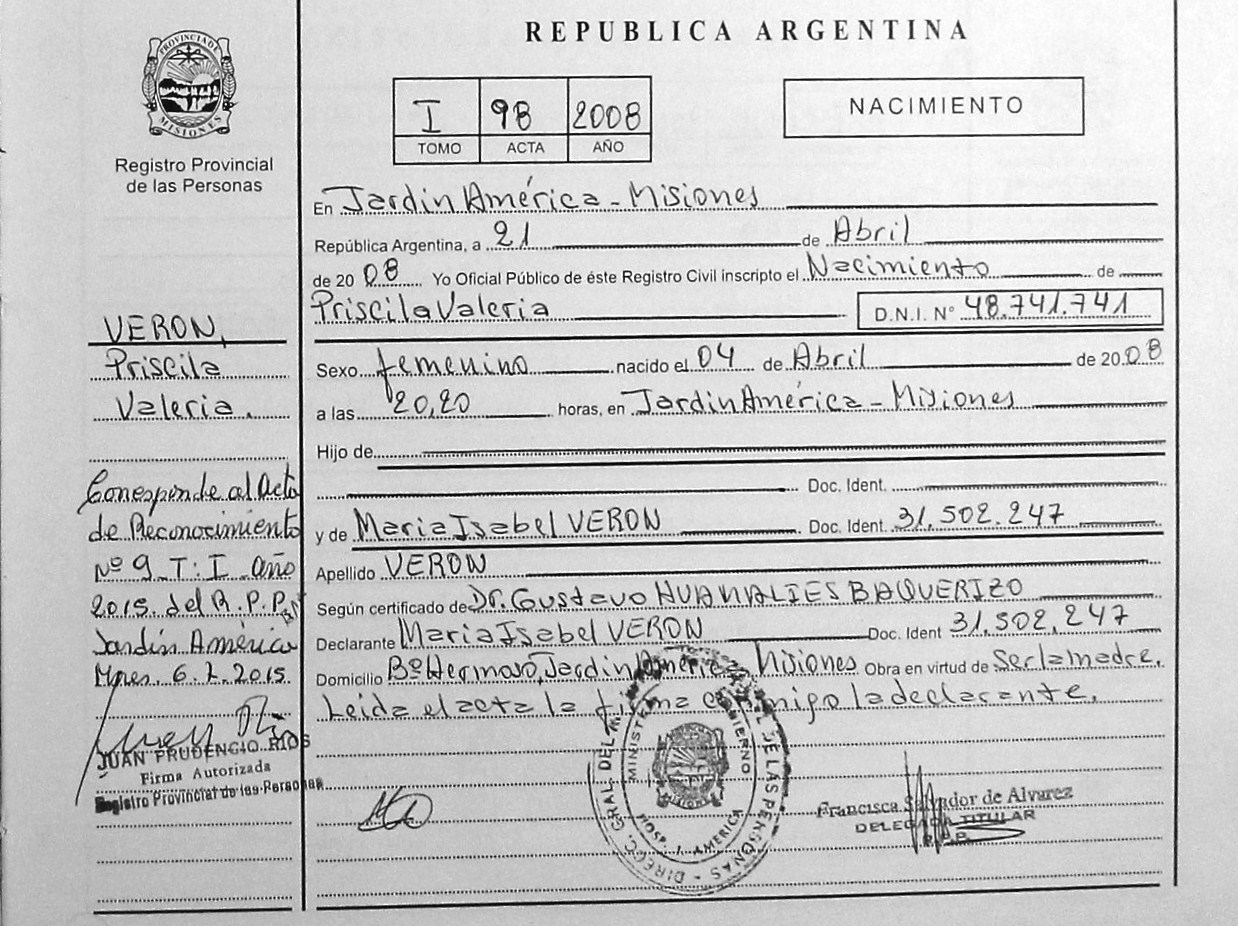 REPUBLICA ARGENTINA
PROVINCIA DE
MISIONES
Registro Provincial
de las Personas
I 98 2008
TOMO ACTA AÑO
NACIMIENTO
En Jardin América - Misiones
República Argentina, a 21 de Abril
de 2008 Yo Oficial Público de éste Registro Civil inscripto el Nacimiento de
Priscila Valeria D.N.I. N° 48.741.741
Sexo femenino nacido el 04 de Abril de 2008
a las 20,20 horas, en Jardin América - Misiones
Hijo de
Doc. Ident.
y de Maria Isabel VERON Doc. Ident. 31.502.247
Apellido VERON
Según certificado de Dr. Gustavo HUANALIES BAQUERIZO
Declarante Maria Isabel VERON Doc. Ident 31.502.247
Domicilio Bº Hermoso, Jardin América Misiones Obra en virtud de Ser la madre.
Leida el acta la firma conmigo la declarante.
VERON,
Priscila
Valeria.
Corresponde al Acta
de Reconocimiento
Nº 9 T: I año
2015 del R. P. P.
Jardín América
Mnes. 6.2.2015.
JUAN PRUDENCIO RIOS
Firma Autorizada
Registro Provincial de las Personas
DIREC. GRAL. DEL DE LAS PERSONAS
HOSP. J. AMERICA
MISIONES
Francisca Salvador de Alvarez
DELEGADA TITULAR
R.P.P.